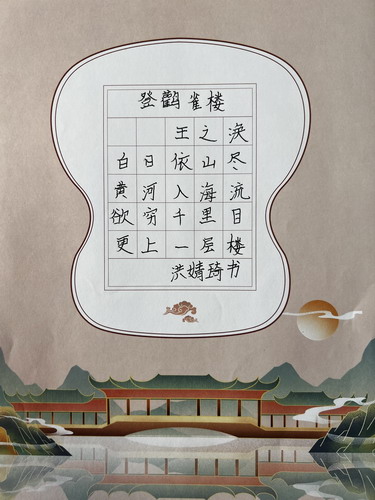 登鹳雀楼
王之涣
白日依山尽
黄河入海流
欲穷千里目
更上一层楼
洪婧琦书